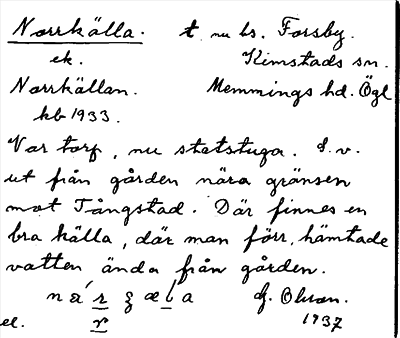 Norrkälla. t. nu hs. Forsby.
ek. Kimstads sn.
Norrkällan. Memmings hd. Ögl
kb 1933.
Var torp, nu statstuga. S.v.
ut från gården nära gränsen
mot Tångstad. Där finnes en
bra källa, där man förr, hämtade
vatten ända från gården.
el. 1937